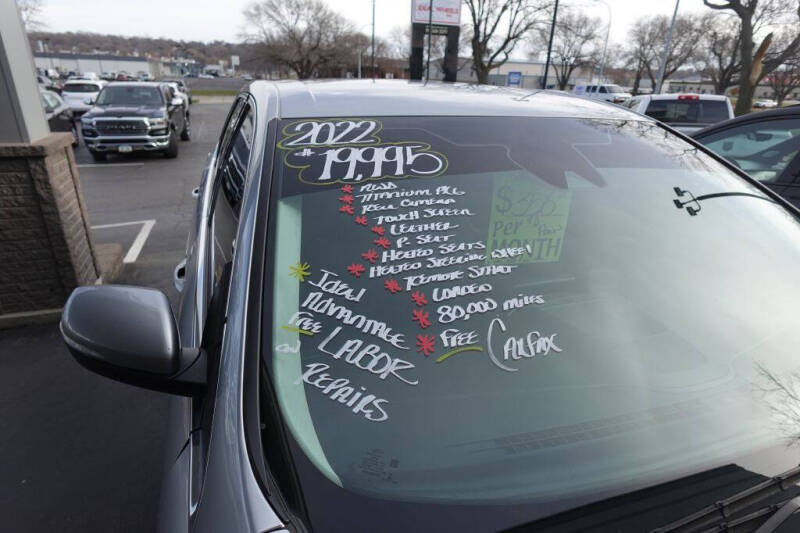 2022
$19,995
* AWD
* TITANIUM PKG
* REAR CAMERA
* TOUCH SCREEN
* LEATHER
* P. SEAT
* HEATED SEATS
* HEATED STEERING WHEEL
* REMOTE START
* LOADED
* 80,000 MILES
* FREE CARFAX
* IDEAL
ADVANTAGE
FREE LABOR
ON
REPAIRS
Per
MONTH